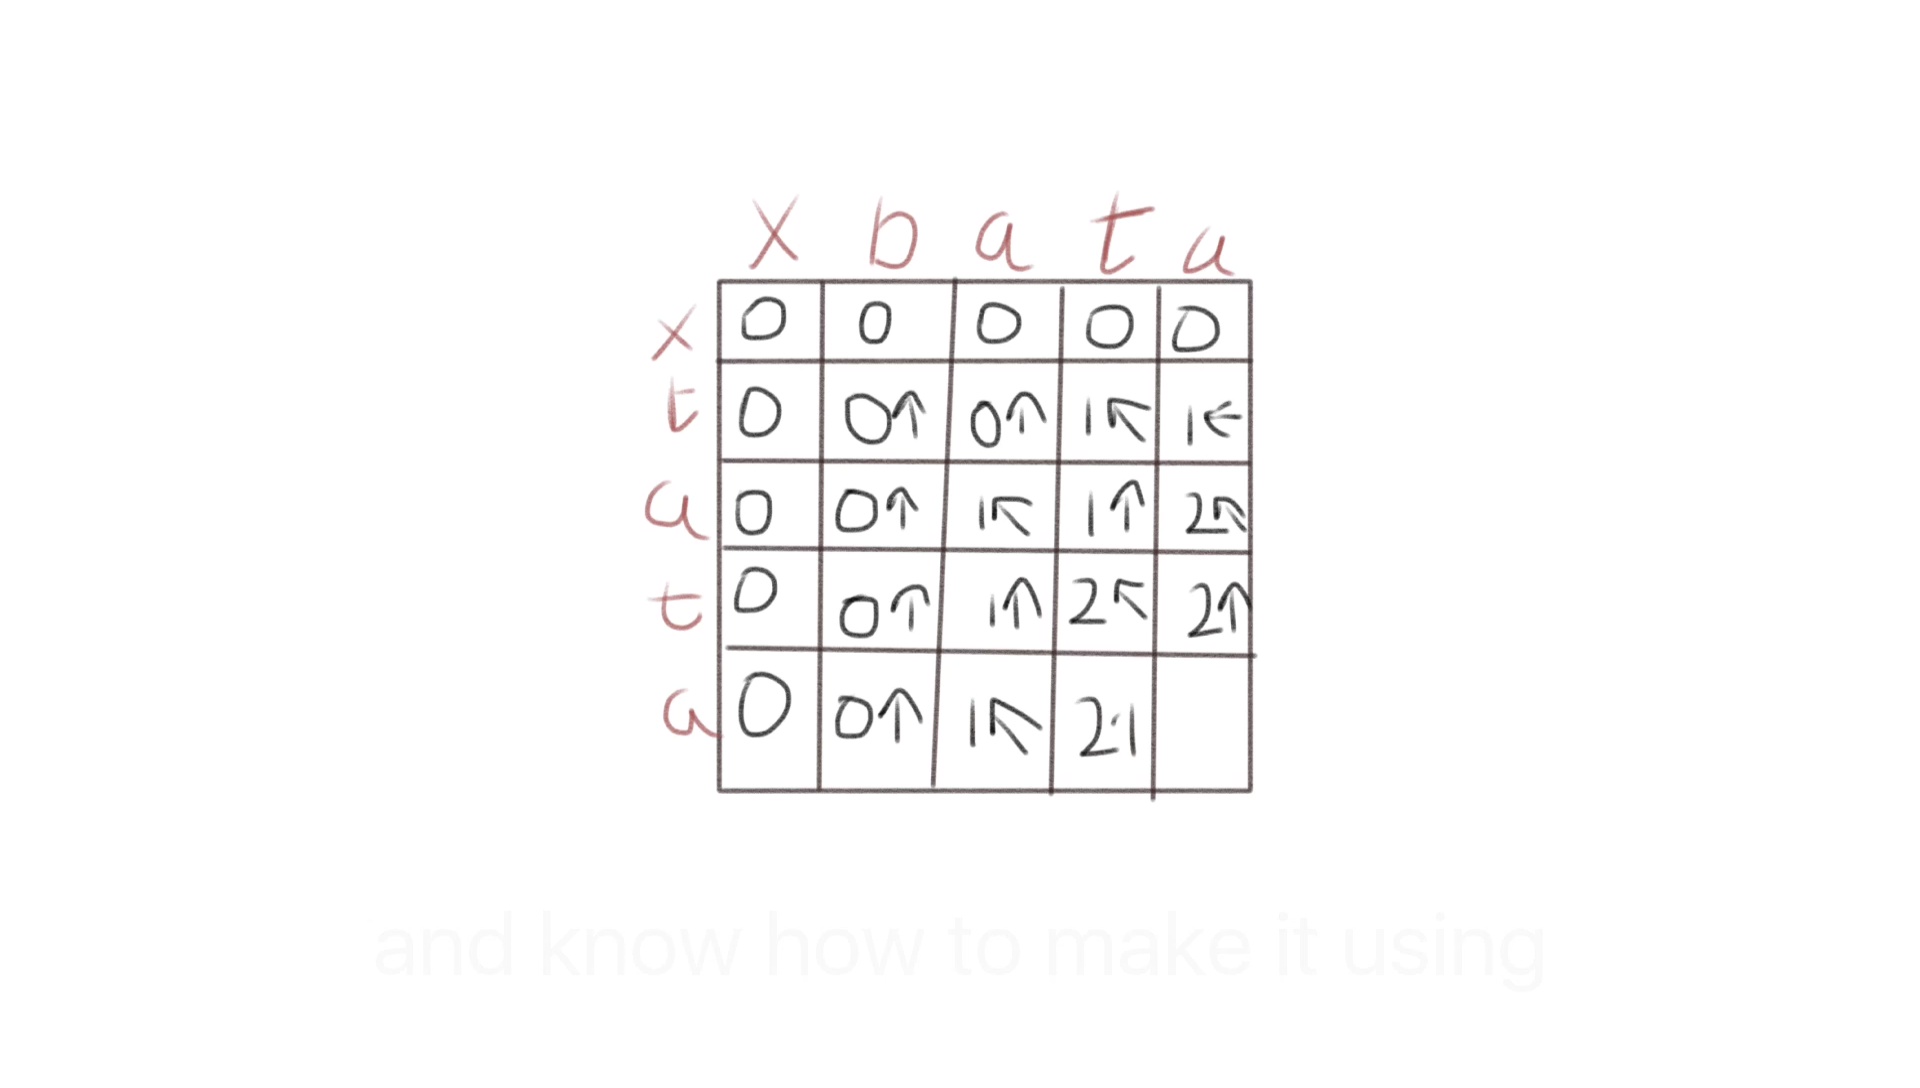 x b a t a
x 0 0 0 0 0
t 0 0↑ 0↑ 1↖ 1←
a 0 0↑ 1↖ 1↑ 2↖
t 0 0↑ 1↑ 2↖ 2↑
a 0 0↑ 1↖ 2
and know how to make it using